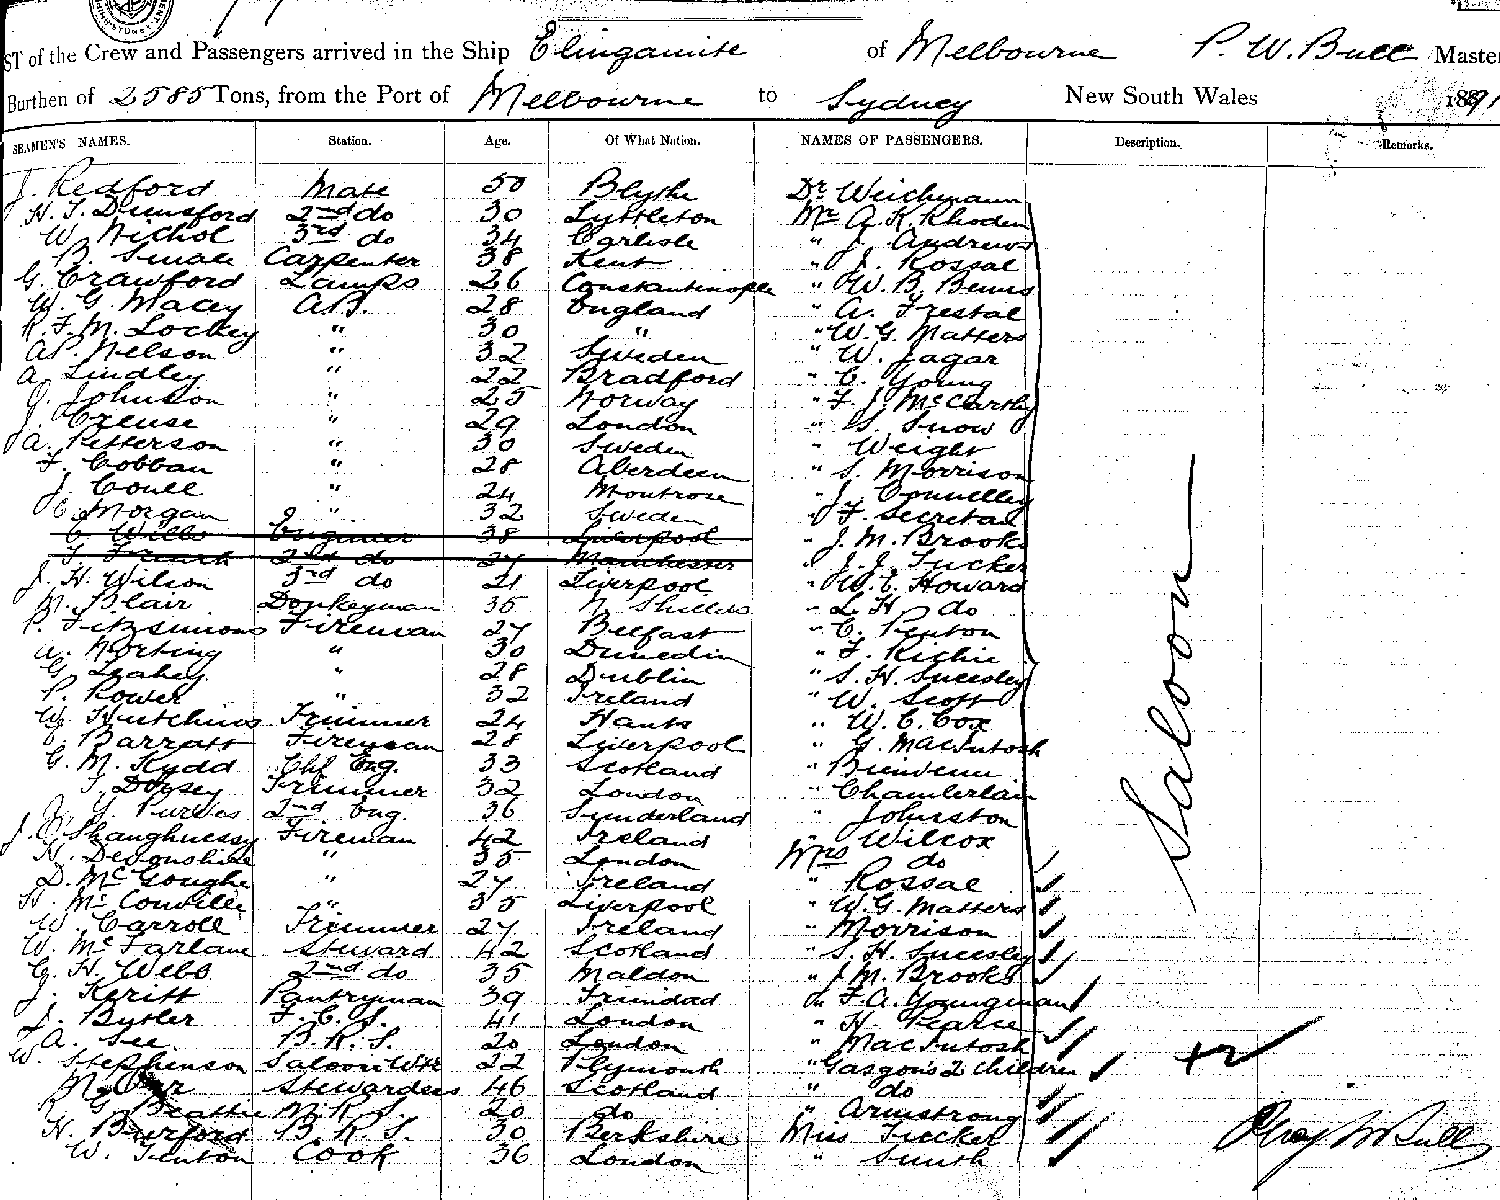 ST of the Crew and Passengers arrived in the Ship Elingamite of Melbourne P. W. Bull Master
Burthen of 2585 Tons, from the Port of Melbourne to Sydney New South Wales 1891
SEAMEN'S NAMES. Station. Age. Of What Nation. NAMES OF PASSENGERS. Description. Remarks.
J. Redford Mate 50 Blythe Dr Weichmann
H. J. Dunsford 2nd do 30 Lyttleton Mr A. K. Rhoden
W. Nichol 3rd do 34 Carlisle " J. Andrews
Carpenter 38 Kent " J. Rossal
G. Crawford Lamps 26 Constantinople " W. B.
W. G. Macey A.B. 28 England " A.
R. F. M. Lockey " 30 " " W. G. Matters
A. P. Nelson " 32 Sweden " W. Jagar
A. Lindley " 22 Bradford " C. Young
J. Johnson " 25 Norway " F. J. McCarthy
J. Creuse " 29 London " S. Snow
A. Petterson " 30 Sweden " Weight
F. Cobban " 28 Aberdeen " S. Morrison
J. Coull " 24 Montrose " J. Connelley
C. Morgan " 32 Sweden " F. Secretan
C. Wills Engineer 38 Liverpool " J. M. Brooks
2nd do 27 Manchester " J. J. Tucker
J. H. Wilson 3rd do 21 Liverpool " W. E. Howard
M. Blair Donkeyman 35 N. Shields " L. H. do
P. Fitzsimons Fireman 27 Belfast " C. Penton
A. Norting " 30 Dunedin " F. Richie
G. Leahey " 28 Dublin " S. H.
P. Power " 32 Ireland " W. Scott
W. Hutchins Trimmer 24 Hants " W. C. Cox
Barratt Fireman 28 Liverpool " G. MacIntosh
G. M. Kydd Chf Eng. 33 Scotland " Bienvenu
T. Dorsey Trimmer 32 London " Chamberlain
Purves 2nd Eng. 36 Sunderland " Johnston
J. O'Shaughnessy Fireman 42 Ireland " Wilcox
H. Devonshire " 35 London Mrs do
D. McGoughe " 27 Ireland " Rossal
H. McConville " 35 Liverpool " W. G. Matters
W. Carroll Trimmer 27 Ireland " Morrison
W. McFarlane Steward 42 Scotland " S. H.
G. H. Webb 2nd do 35 Maldon " J. M. Brooks
J. Keritt Pantryman 39 Trinidad " F. A. Youngman
J. Butler F. C. S. 41 London " H. Pearce
A. Lee B. R. S. 20 London " MacIntosh
W. Stephenson Saloon Wtr 22 Plymouth " Gasgoins 2 children
M. Stewardess 46 Scotland " do
G. Beattie M. R. S. 20 do " Armstrong
H. Burford B. R. S. 30 Berkshire Miss Tucker
W. Fenton Cook 36 London " Smith
Saloon